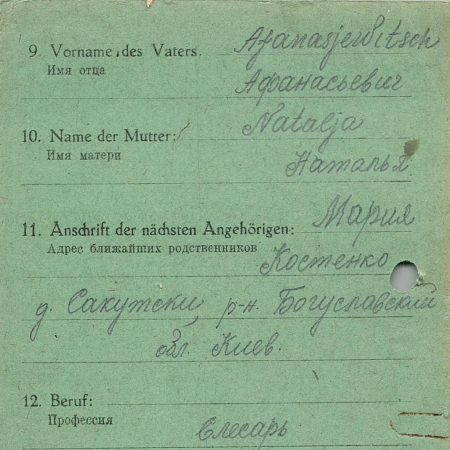 9. Vorname des Vaters. Afanasjewitsch
Имя отца
Афанасьевич
10. Name der Mutter: Natalja
Имя матери
Наталья
11. Anschrift der nächsten Angehörigen: Мария
Адрес ближайших родственников Костенко
д. Сакутски, р-н. Богуславский
обл. Киев.
12. Beruf:
Профессия
Слесарь